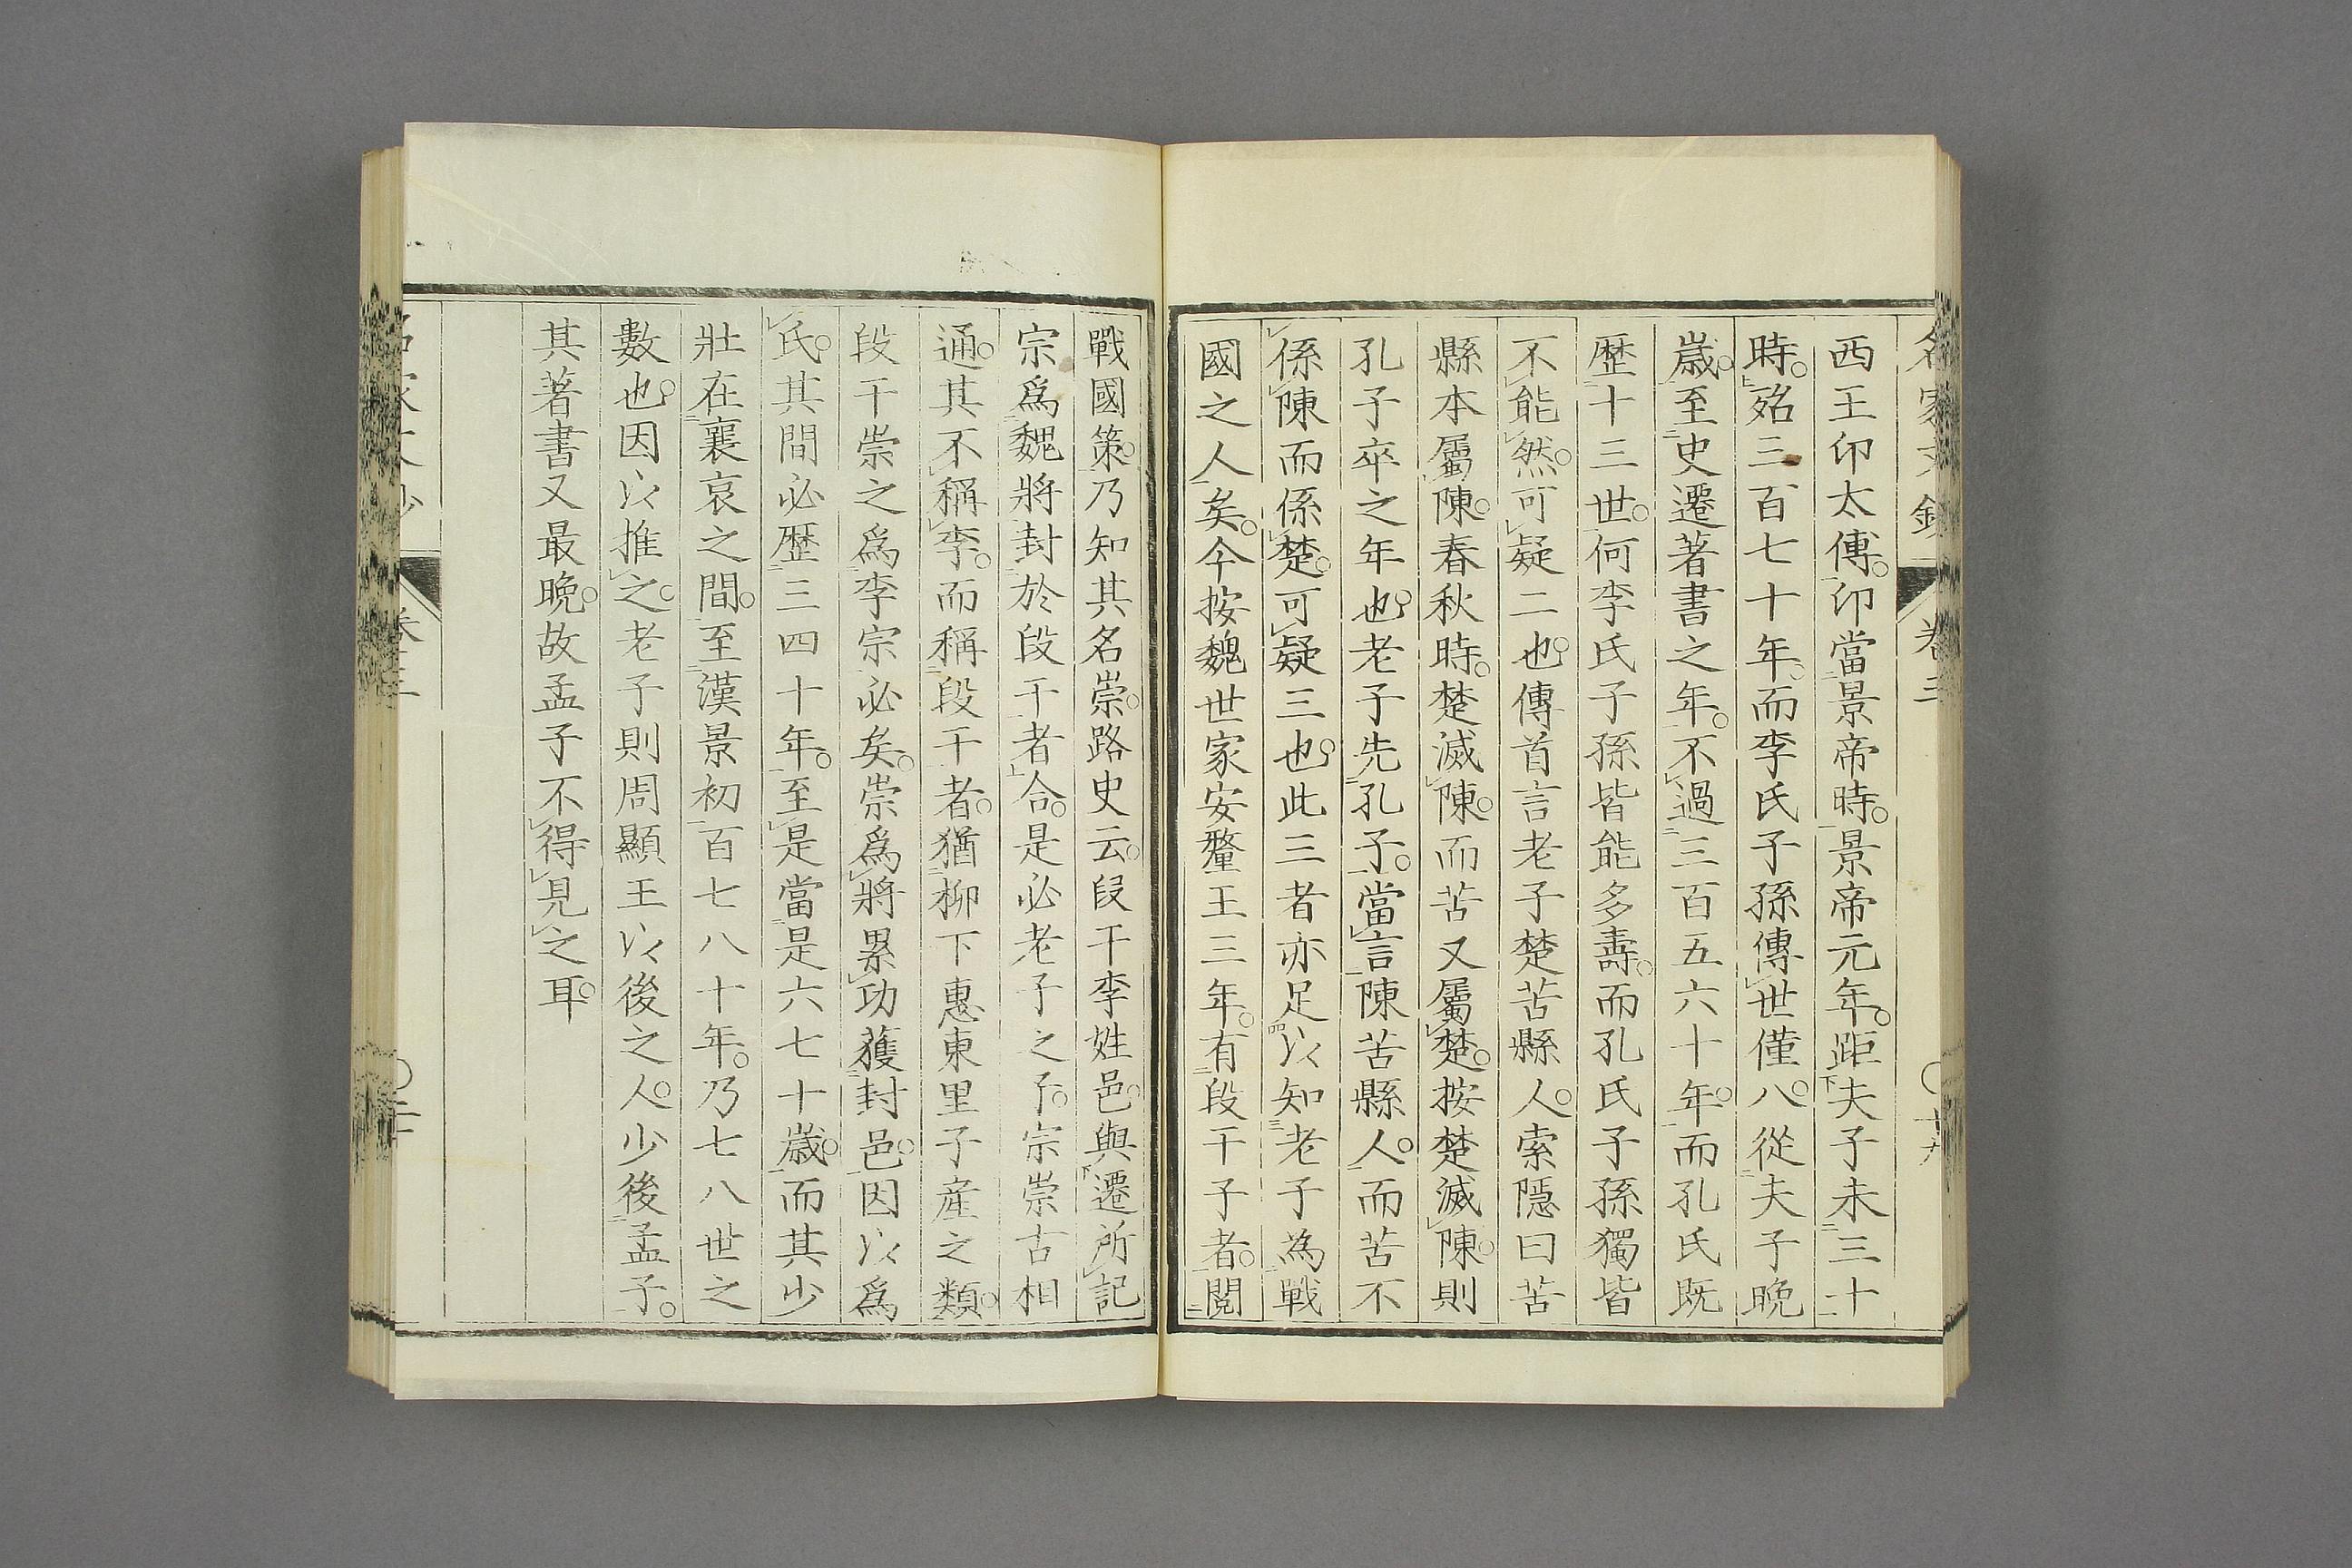 西王卬太傅。卬當景帝時。景帝元年。距夫子未三十
時。殆三百七十年。而李氏子孫傳世僅八。從夫子晚
歲。至史遷著書之年。不過三百五六十年。而孔氏既
歷十三世。何李氏子孫皆能多壽。而孔氏子孫獨皆
不能然。可疑二也。傳首言老子楚苦縣人。索隱曰苦
縣本屬陳。春秋時。楚滅陳。而苦又屬楚。按楚滅陳。則
孔子卒之年也。老子先孔子。當言陳苦縣人。而苦不
係陳而係楚。可疑三也。此三者亦足以知老子為戰
國之人矣。今按魏世家安釐王三年。有段干子者。閱
戰國策。乃知其名崇。路史云。段干李姓邑。與遷所記
宗爲魏將封於段干者合。是必老子之子。宗崇古相
通。其不稱李。而稱段干者。猶柳下惠東里子產之類。
段干崇之爲李宗必矣。崇爲將累功獲封邑。因以爲
氏。其間必歷三四十年。至是當是六七十歲。而其少
壯在襄哀之間。至漢景初百七八十年。乃七八世之
數也。因以推之。老子則周顯王以後之人。少後孟子。
其著書又最晚。故孟子不得見之耳。